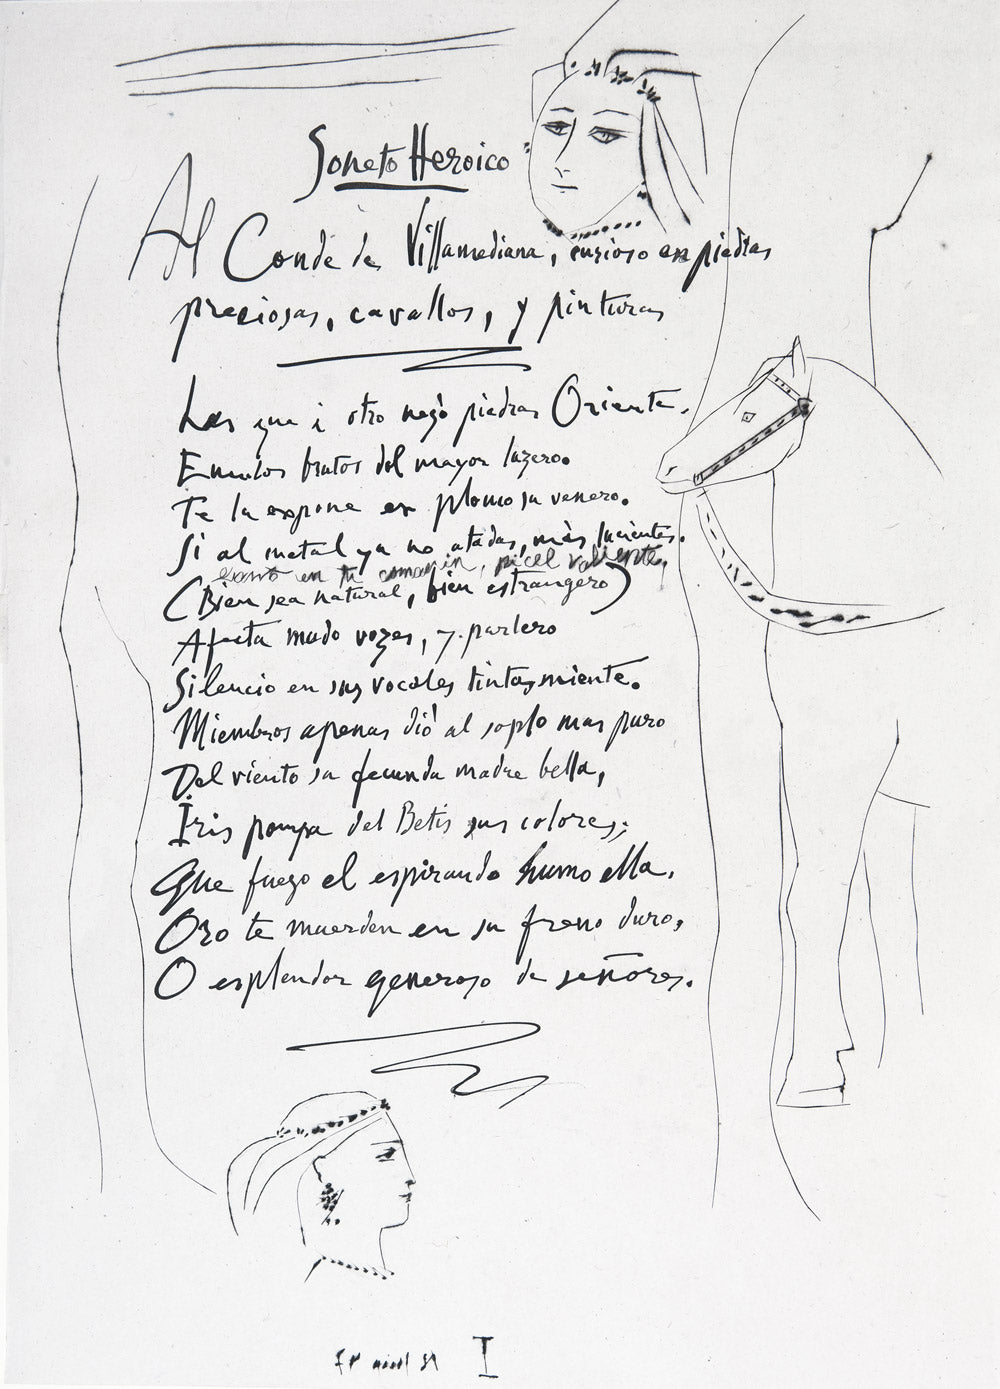 Soneto Heroico
Al Conde de Villamediana, curioso en piedras
preciosas, cavallos, y pinturas
Las que a otro negó piedras Oriente,
Emulos brutos del mayor luzero.
Te la expone en plomo su venero.
Si al metal ya no atadas, màs lucientes.
Cuanto en tu camarin, picel valiente,
(Bien sea natural, bien estrangero)
Afecta mudo vozes, y parlero
Silencio en sus vocales tintas miente.
Miembros apenas dió al soplo mas puro
Del viento su fecunda madre bella,
Iris pompa del Betis sus colores;
Que fuego el espirando humo ella,
Oro te muerden en su freno duro,
O esplendor generoso de señores.
I